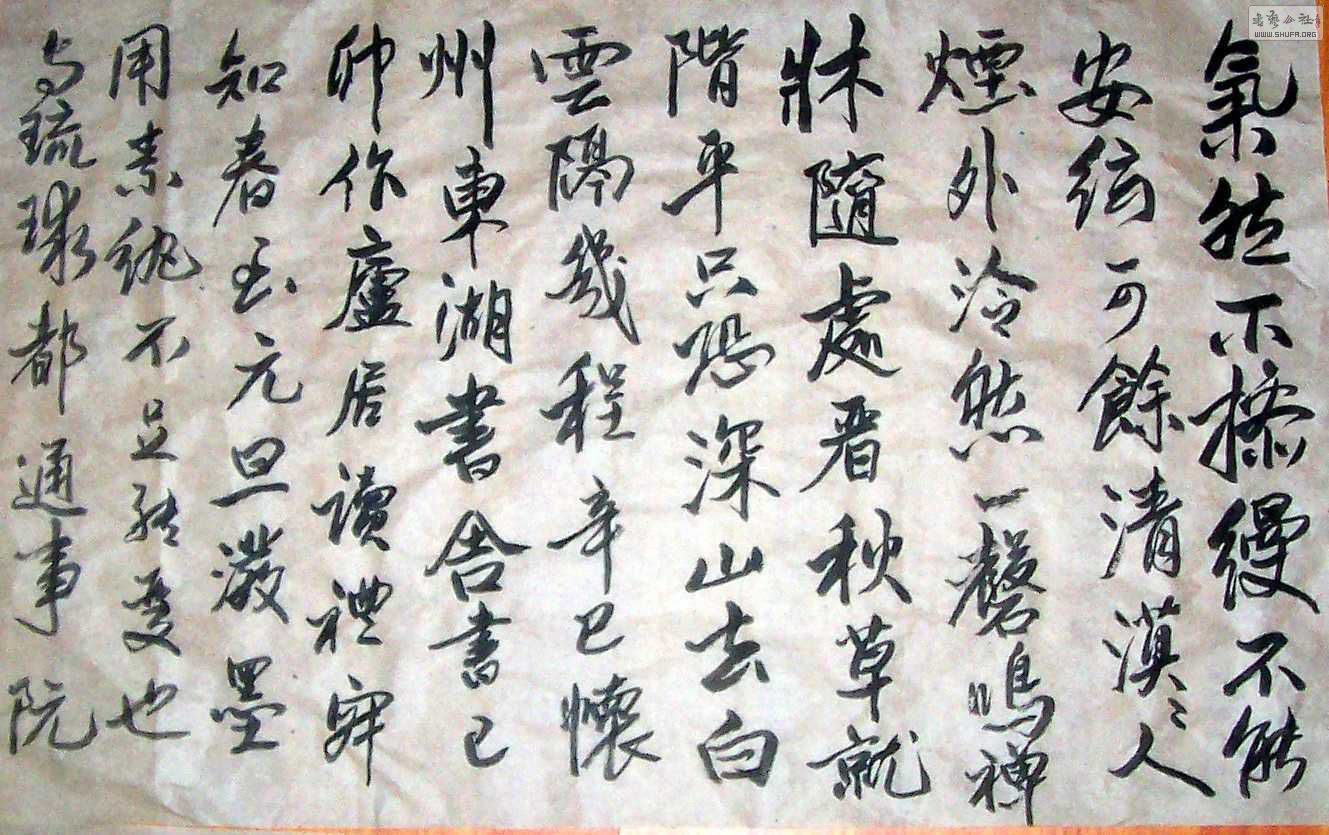 氣然不操縵不能
安絃可餘清漠〻人
煙外泠然一磬鳴禪
牀隨處秋草就
階平只恐深山去白
雲隔幾程辛巳懷
州東湖書舍書己
卯作廬居讀禮罕
知春至元旦潑墨
用素紈不足受也
与琉球都通事阮
书艺公社
WWW.SHUFA.ORG